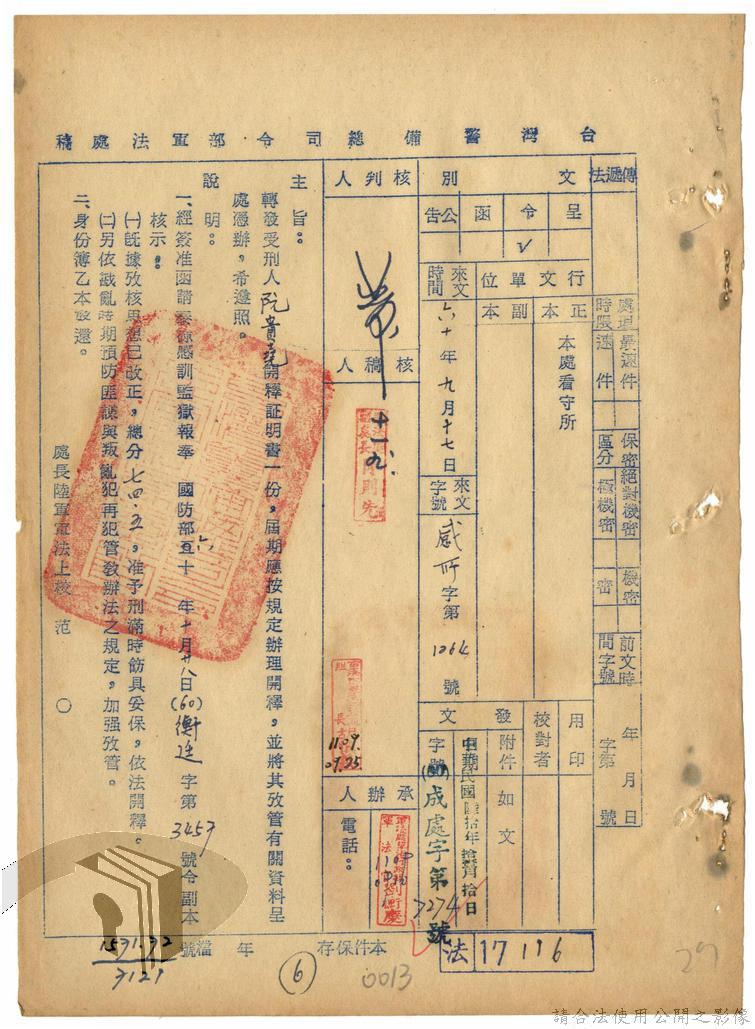 台灣警備總司令部軍法處稿
傳遞法
處理時限
最速件
速件
保密區分
絕對機密
極機密
機密
密
前文時間字號
年月日
字第號
文別
呈
令
函
公告
ˇ
行文單位
正本
副本
本處看守所
來文時間
六十年九月十七日
來文字號
感所字第1064號
發文
用印
校對者
附件
如文
日期
中華民國陸拾年拾壹月拾日
字號
(60)成處字第7274號
法
17116
核判人
十一九.
核稿人
11.09.
09.25
承辦人
電話：
主旨：轉發受刑人阮貴堯開釋証明書一份，屆期應按規定辦理開釋，並將其攷管有關資料呈
處憑辦，希遵照。
說明：
一、經簽准函請泰源感訓監獄報奉 國防部六十年十月廿八日(60)衡廷字第3457號令副本
核示：
(一)旣據攷核思想已改正，總分七四.五，准予刑滿時飭具妥保，依法開釋。
(二)另依戡亂時期預防匪諜與叛亂犯再犯管敎辦法之規定，加强攷管。
二、身份簿乙本發還。
處長陸軍軍法上校范 〇
本件保存 年
檔號
1571.32
7127
6
0013
29
請合法使用公開之影像